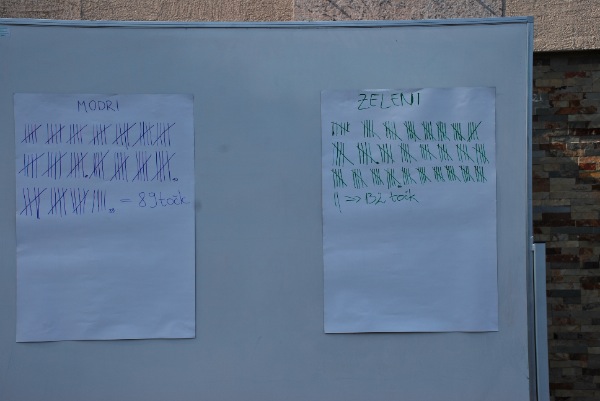 MODRI
= 89 točk
ZELENI
=> 132 točk